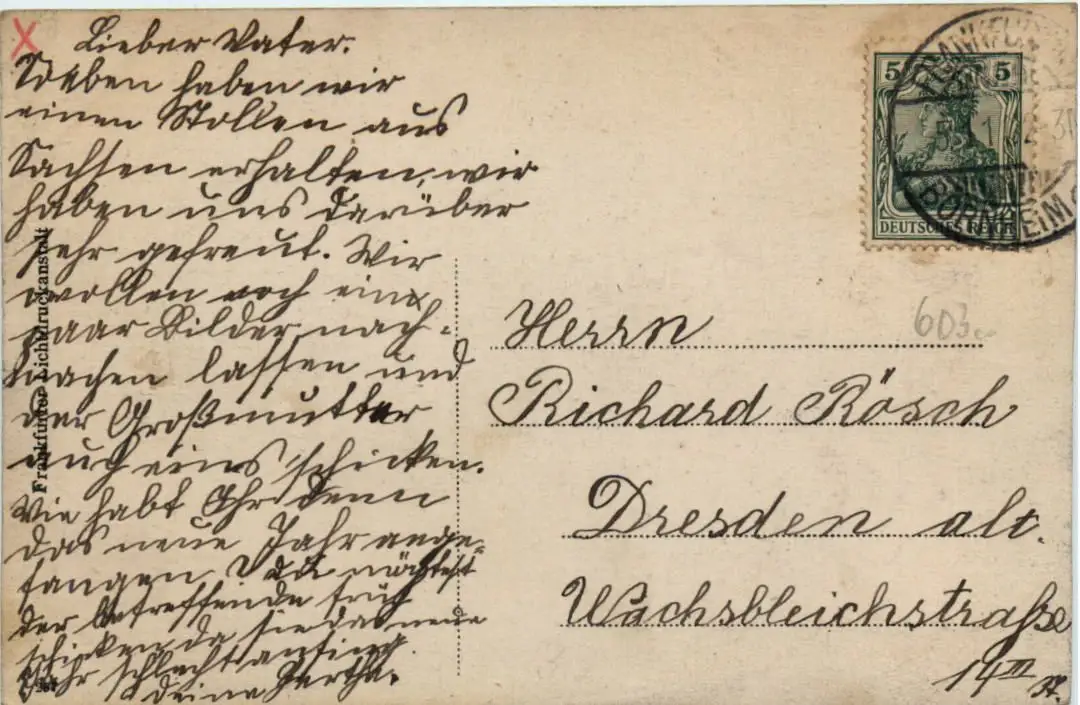 Lieber Vater.
Soeben haben wir
einen Stollen aus
Sachsen erhalten, wir
haben uns darüber
sehr gefreut. Wir
wollen noch ein
paar Bilder nach-
machen lassen und
der Großmutter
auch eins schicken.
Wie habt Ihr denn
das neue Jahr ange-
fangen, Du möchtest
der betreffende früh
schicken, da sie das neue
Jahr schlecht anfing.
deine Hertha.
Frankfurter Lichtdruckanstalt
5 5
DEUTSCHES REICH
FRANKFURT
BORNHEIM
603
Herrn
Richard Rösch
Dresden alt.
Wachsbleichstraße
14 III